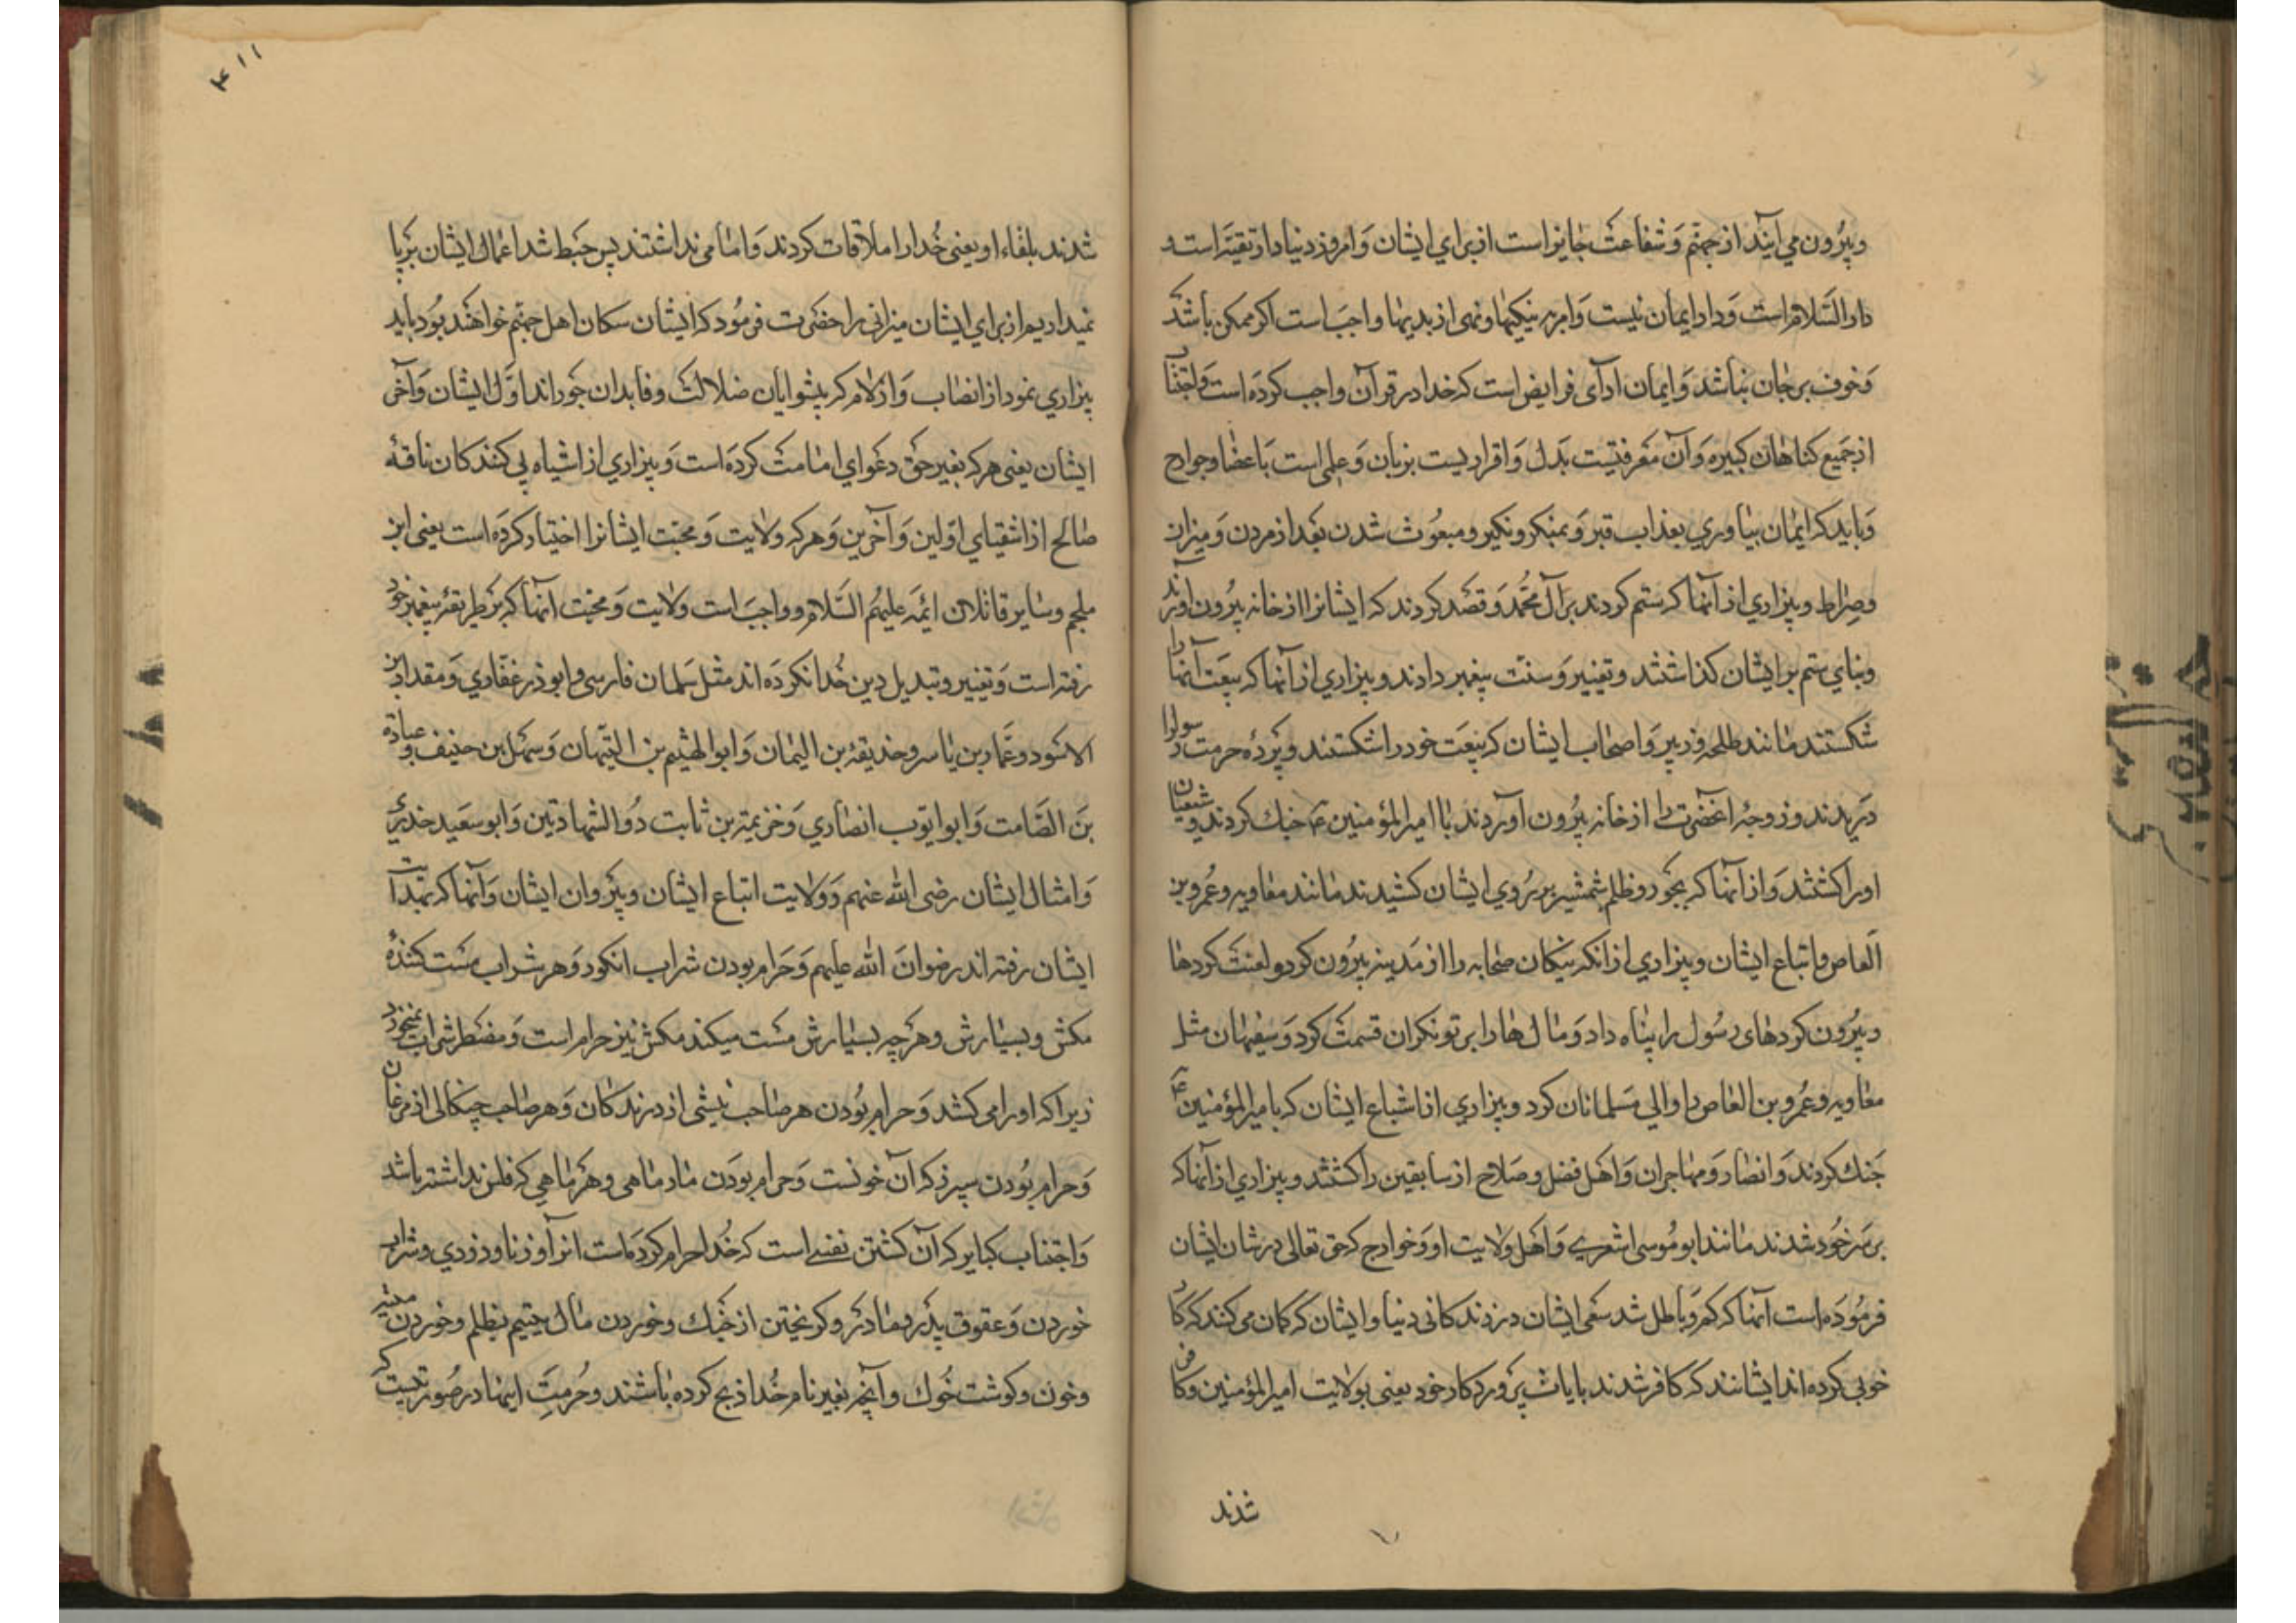 وبیرون می آیند از جهنم وشفاعت جایز است از برای ایشان وامروز دنیا دار تقیه است و
دار السلام است ودار ایمان نیست وامر به نیکیها ونهی از بدیها واجب است اکر ممکن باشد
وخوف بر جان نباشد وایمان ادآی فرایض است که خدا در قرآن واجب کرده است واجتناب
از جمیع کناهان کبیره وآن معرفتیست بدل واقراریست بزبان وعملی است باعضا وجوارح
وباید که ایمان بیاوری بعذاب قبر وبمنکر ونکیر ومبعوث شدن بعد از مردن ومیزان
وصراط وبیزاری از آنها که ستم کردند بر آل محمد وقصد کردند که ایشانرا از خانه بیرون آورند
وبنای ستم بر ایشان کذاشتند وتغییر وسنت پیغمبر دادند وبیزاری از آنها که بیعت آنها را
شکستند مانند طلحه وزبیر واصحاب ایشان که بیعت خود را شکستند وپرده حرمت رسولرا
دریدند وزوجهٔ آنحضرت را از خانه بیرون آوردند با امیر المؤمنین ع جنك کردند وشیعیان
اورا کشتند واز آنها که بجور وظلم شمشیر بر روی ایشان کشیدند مانند معاویه وعمرو بن
العاص واتباع ایشان وبیزاری از انکه نیکان صحابه را از مدینه بیرون کرد ولعنت کردها
وبیرون کردهای رسول را پناه داد ومال ها را بر تونکران قسمت کرد وسفیهان مثل
معاویه وعمرو بن العاص را والی مسلمانان کرد وبیزاری از اشباع ایشان که با میر المؤمنین ع
جنك کردند وانصار ومهاجران واهل فضل وصلاح از سابقین را کشتند وبیزاری از آنها که
بر سر خود شدند مانند ابو موسی اشعری واهل ولایت او وخوارج که حق تعالی در شان ایشان
فرموده است آنها که کم وباطل شد سعی ایشان در زندکانی دنیا وایشان کمان می کنند که کار
خوبی کرده اند ایشانند که کافر شدند بایات پروردکار خود یعنی بولایت امیر المؤمنین وکافر
شدند
۴۱۱
شدند بلقاء او یعنی خدا را ملاقات کردند وامامی نداشتند پس حبط شد اعمال ایشان برپا
نمیداریم از برای ایشان میزانی را حضرت فرمود که ایشان سکان اهل جهنم خواهند بود باید
بیزاری نمود از انصاب وازلام که پیشوایان ضلالت وقایدان جوراند اول ایشان وآخر
ایشان یعنی هر که بغیر حق دعوای امامت کرده است وبیزاری از اشباه پی کنندکان ناقهٔ
صالح از اشقیای اولین وآخرین وهر که ولایت ومحبت ایشانرا اختیار کرده است یعنی ابن
ملجم وسایر قاتلان ائمه علیهم السلام وواجب است ولایت ومحبت آنها که بر طریقهٔ پیغمبر خود
رفته است وتغییر وتبدیل دین خدا نکرده اند مثل سلمان فارسی وابوذر غفاری ومقداد بن
الاسود وعمار بن یاسر وحذیفهٔ بن الیمان وابو الهثیم بن التیهان وسهل بن حنیف وعبادة
بن الصامت وابو ایوب انصاری وخزیمة بن ثابت ذو الشهادتین وابو سعید خدری
وامثال ایشان رضی الله عنهم وولایت اتباع ایشان وپیروان ایشان وآنها که بهدایت
ایشان رفته اند رضوان الله علیهم وحرام بودن شراب انکور وهر شراب مست کنندهٔ
مکش وبسیارش وهرچه بسیارش مست میکند مکش نیز حرام است ومضطر شراب نمیخورد
زیرا که اورا می کشد وحرام بودن هر صاحب نیشی از درندکان وهر صاحب چنکالی از مرغان
وحرام بودن سپرز که آن خونست وحرام بودن مار ماهی وهر ماهی که فلس نداشته باشد
واجتناب کبایر که آن کشتن نفسی است که خدا حرام کرده است انرا وزنا ودزدی وشراب
خوردن وعقوق پدر ومادر وکریختن از جنك وخوردن مال یتیم بظلم وخوردن میته
وخون وکوشت خوك وآنچه بغیر نام خدا ذبح کرده باشند وحرمت اینها در صورتیست که